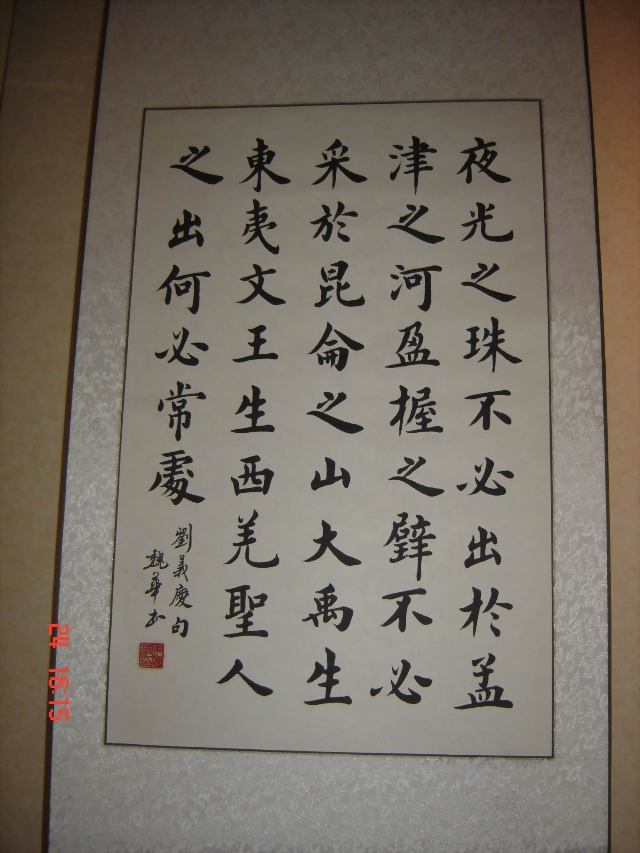 夜光之珠不必出於孟
津之河盈握之璧不必
采於昆侖之山大禹生
東夷文王生西羌聖人
之出何必常處
劉義慶句
魏華书
24 16:15